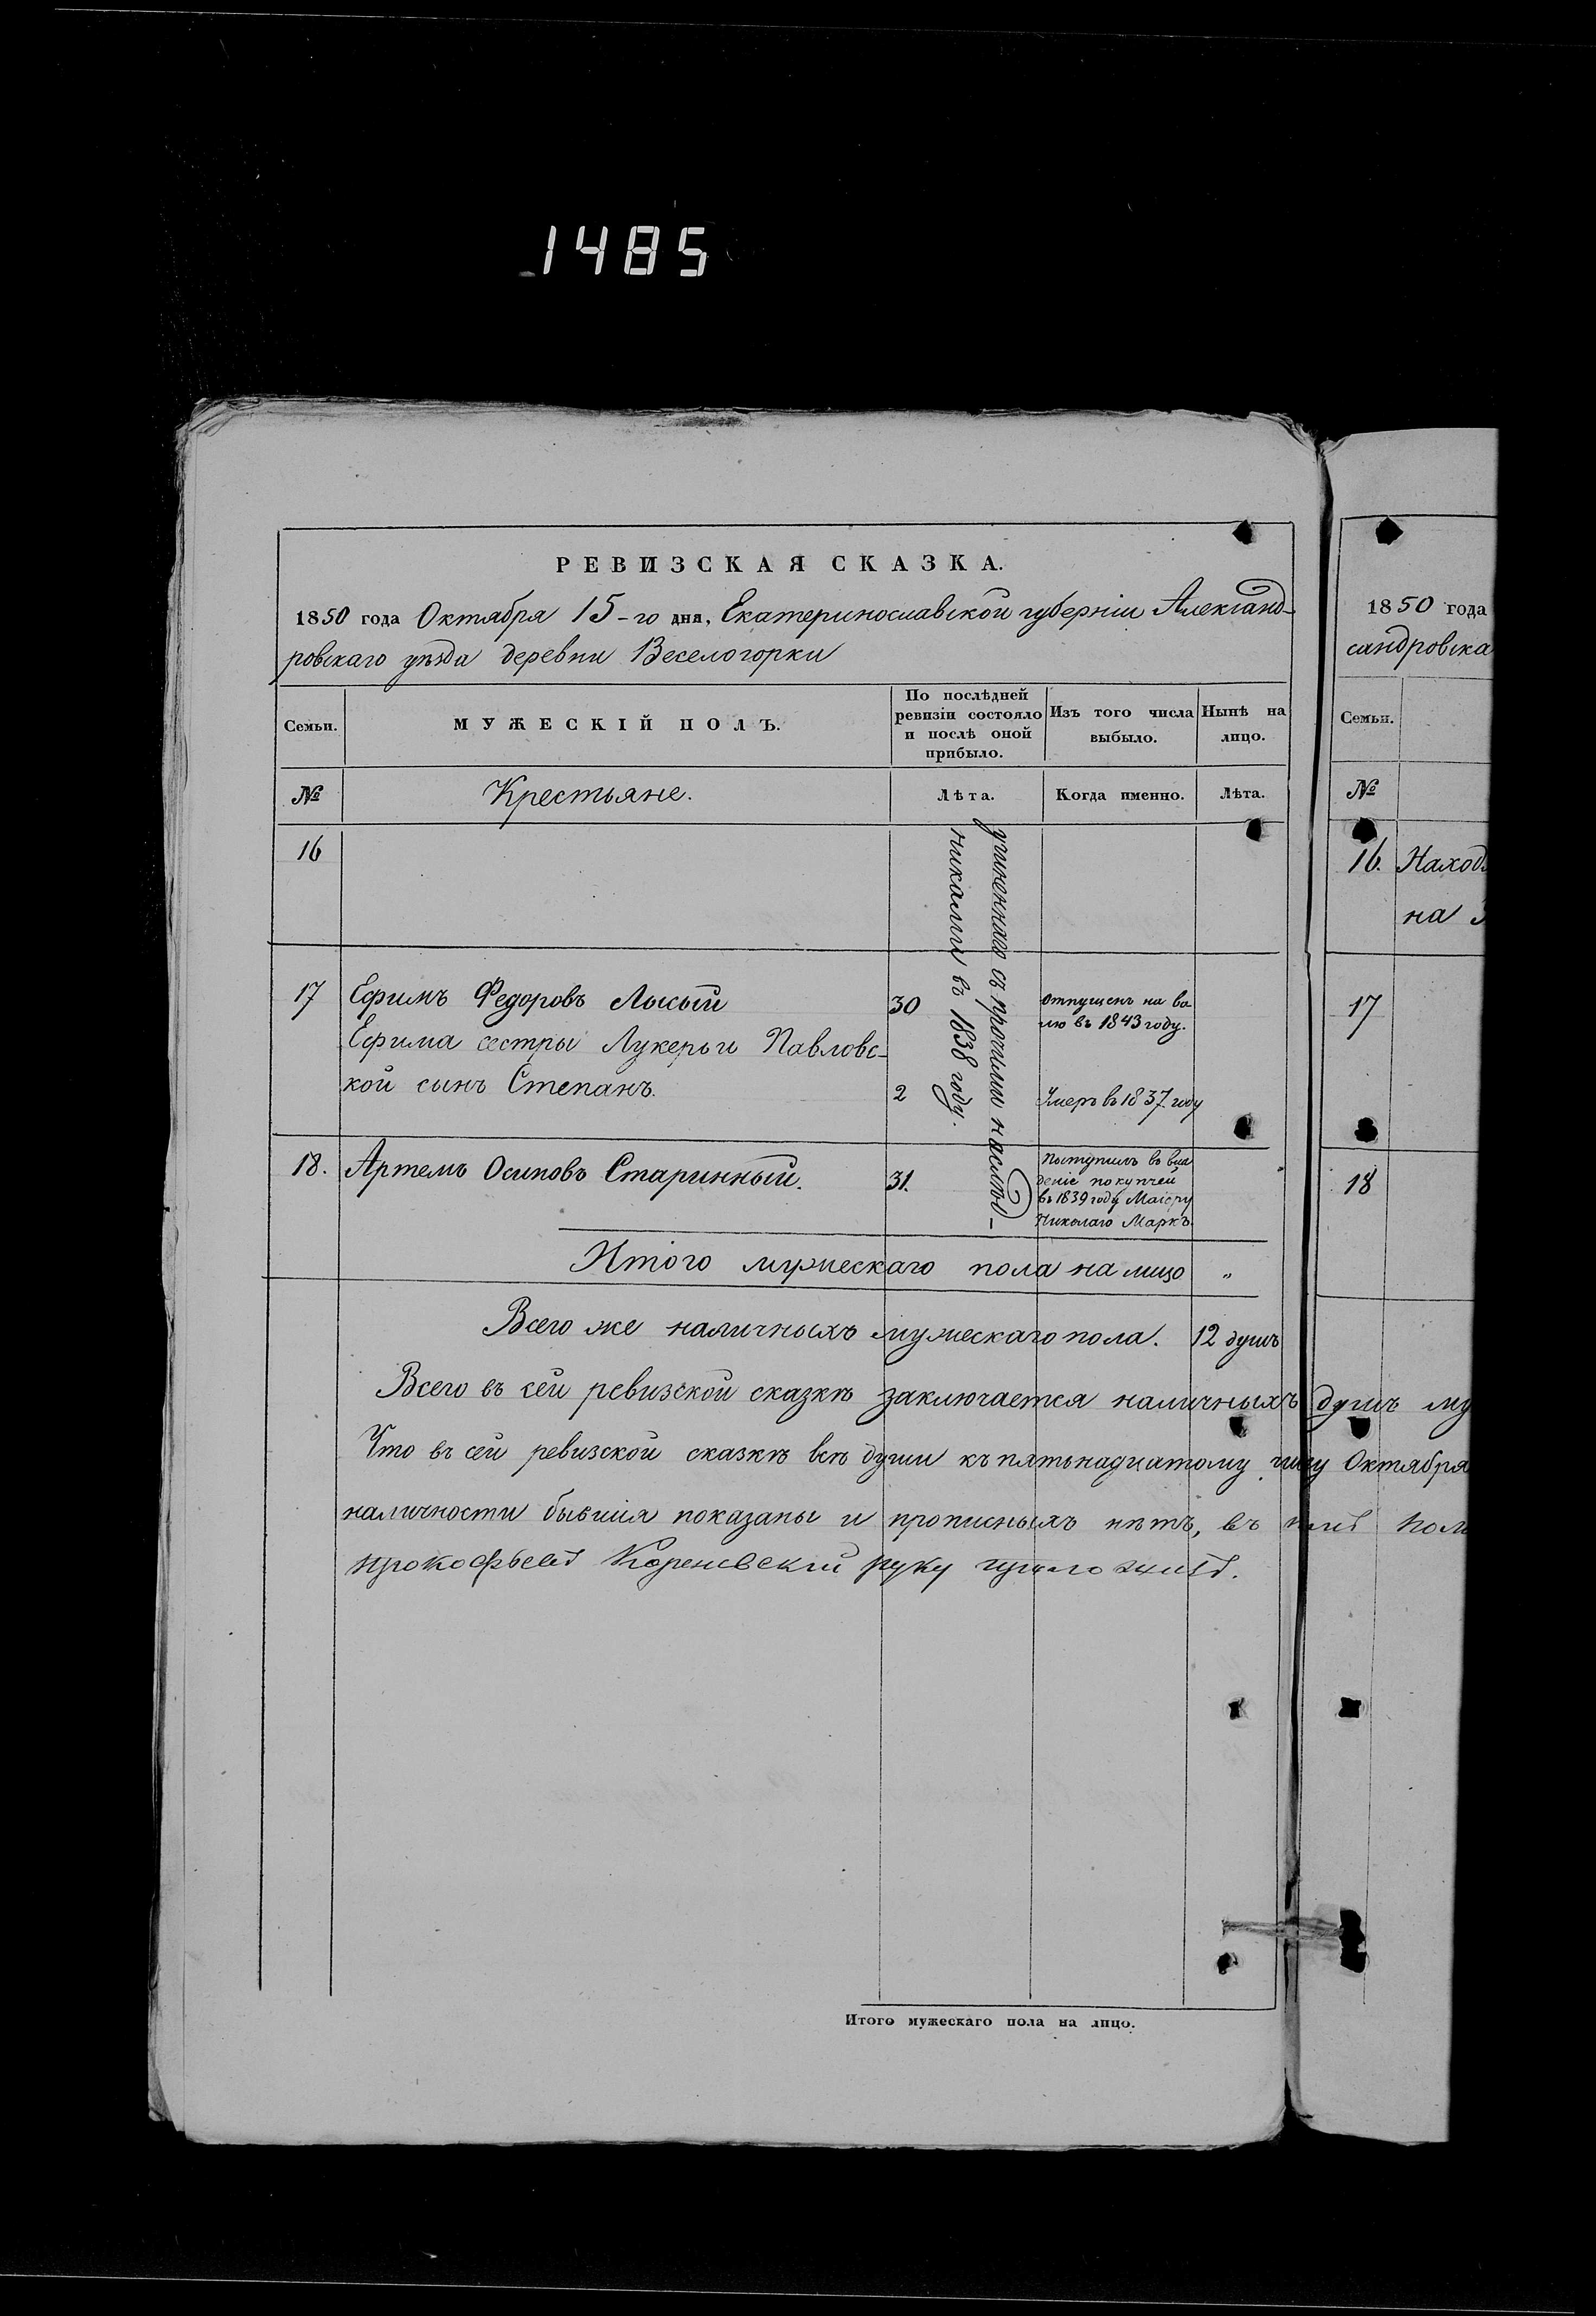 1485
РЕВИЗСКАЯ СКАЗКА.
1850 года Октября 15-го дня, Екатеринославской губерніи Александ-
ровскаго уѣзда деревни Веселогорки
Семьи.
МУЖЕСКІЙ ПОЛЪ.
По послѣдней
ревизіи состояло
и послѣ оной
прибыло.
Изъ того числа
выбыло.
Нынѣ на
лицо.
№
Крестьяне.
Лѣта.
Когда именно.
Лѣта.
16
учиненнаго съ прочими наслѣд-
никами въ 1838 году.
17 Ефимъ Федоровъ Лысый 30 отпущенъ на во
лю въ 1843 году.
Ефима сестры Лукерьи Павловс-
кой сынъ Степанъ. 2 Умеръ въ 1837 году
18. Артемъ Осиповъ Старинный. 31.
Поступилъ во вла
деніе покупчей
въ 1839 году Маіору
Николаю Маркъ
Итого мужескаго пола на лицо "
Всего же наличныхъ мужескаго пола. 12 душъ
Всего въ сей ревизской сказкѣ заключается наличныхъ душъ му
Что въ сей ревизской сказкѣ всѣ души къ пятьнадцатому числу Октября
наличности бывшія показаны и прописныхъ нѣтъ, въ томъ пом
Прокофьевъ Кореневскій руку приложилъ.
Итого мужескаго пола на лицо.
1850 года
сандровска
Семьи.
№
16. Наход
на
17
18